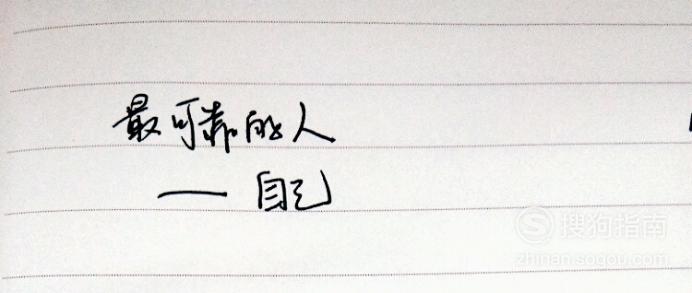 最可靠的人
— 自己
搜狗指南
zhinan.sogou.com